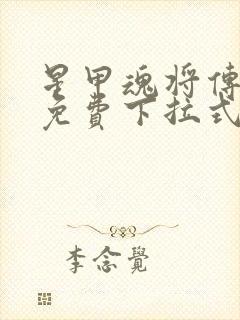 星甲魂将傳
免費下拉式
李念覺